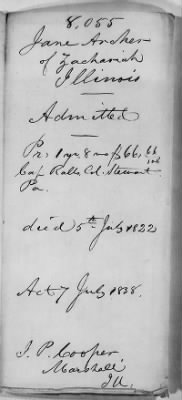 8.055
Jane Archer
of Zachariah
Illinois
Admitted
Pr. 1 yr. 8 m $66,66
Cap Ralls Col. Stewart
Pa.
died 5th July 1822
Act 7 July 1838.
J. P. Cooper,
Marshall
Ill.